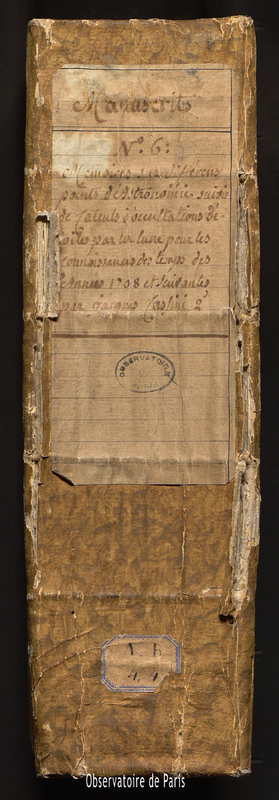 Manuscrits
N.º 6:
Memoires sur differens
points d'Astronomie suivis
de Calculs d'occultations d'é-
toiles par la lune pour les
connoissances des temps des
années 1708 et suivantes
par jacques Cassini 2.
OBSERVATOIRE
PARIS
A. B
4. 1
Observatoire de Paris